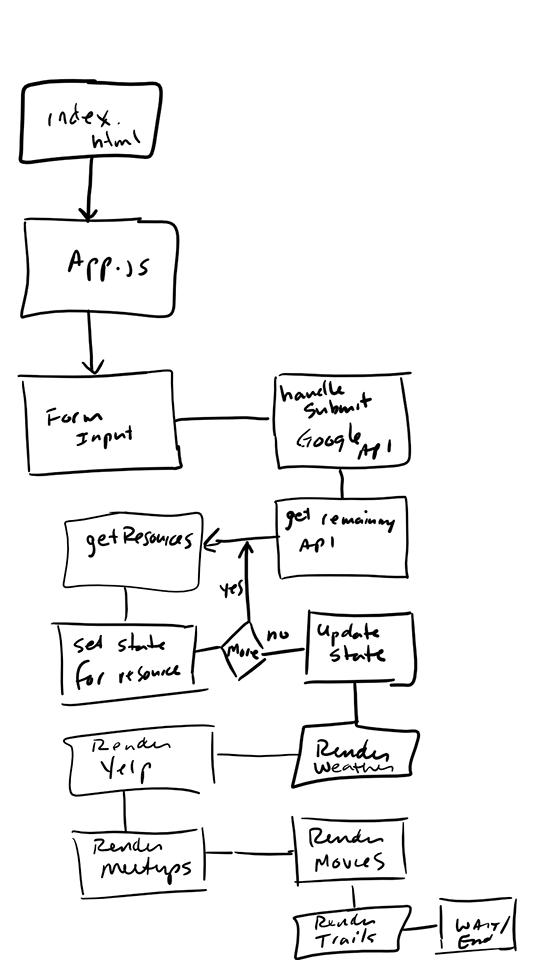 index.
html
App.js
Form
Input
handle
Submit
Google
API
get remaining
API
getResources
yes
set state
for resource
More
no
Update
State
Render
Weather
Render
Yelp
Render
Meetups
Render
Movies
Render
Trails
WAIT/
End